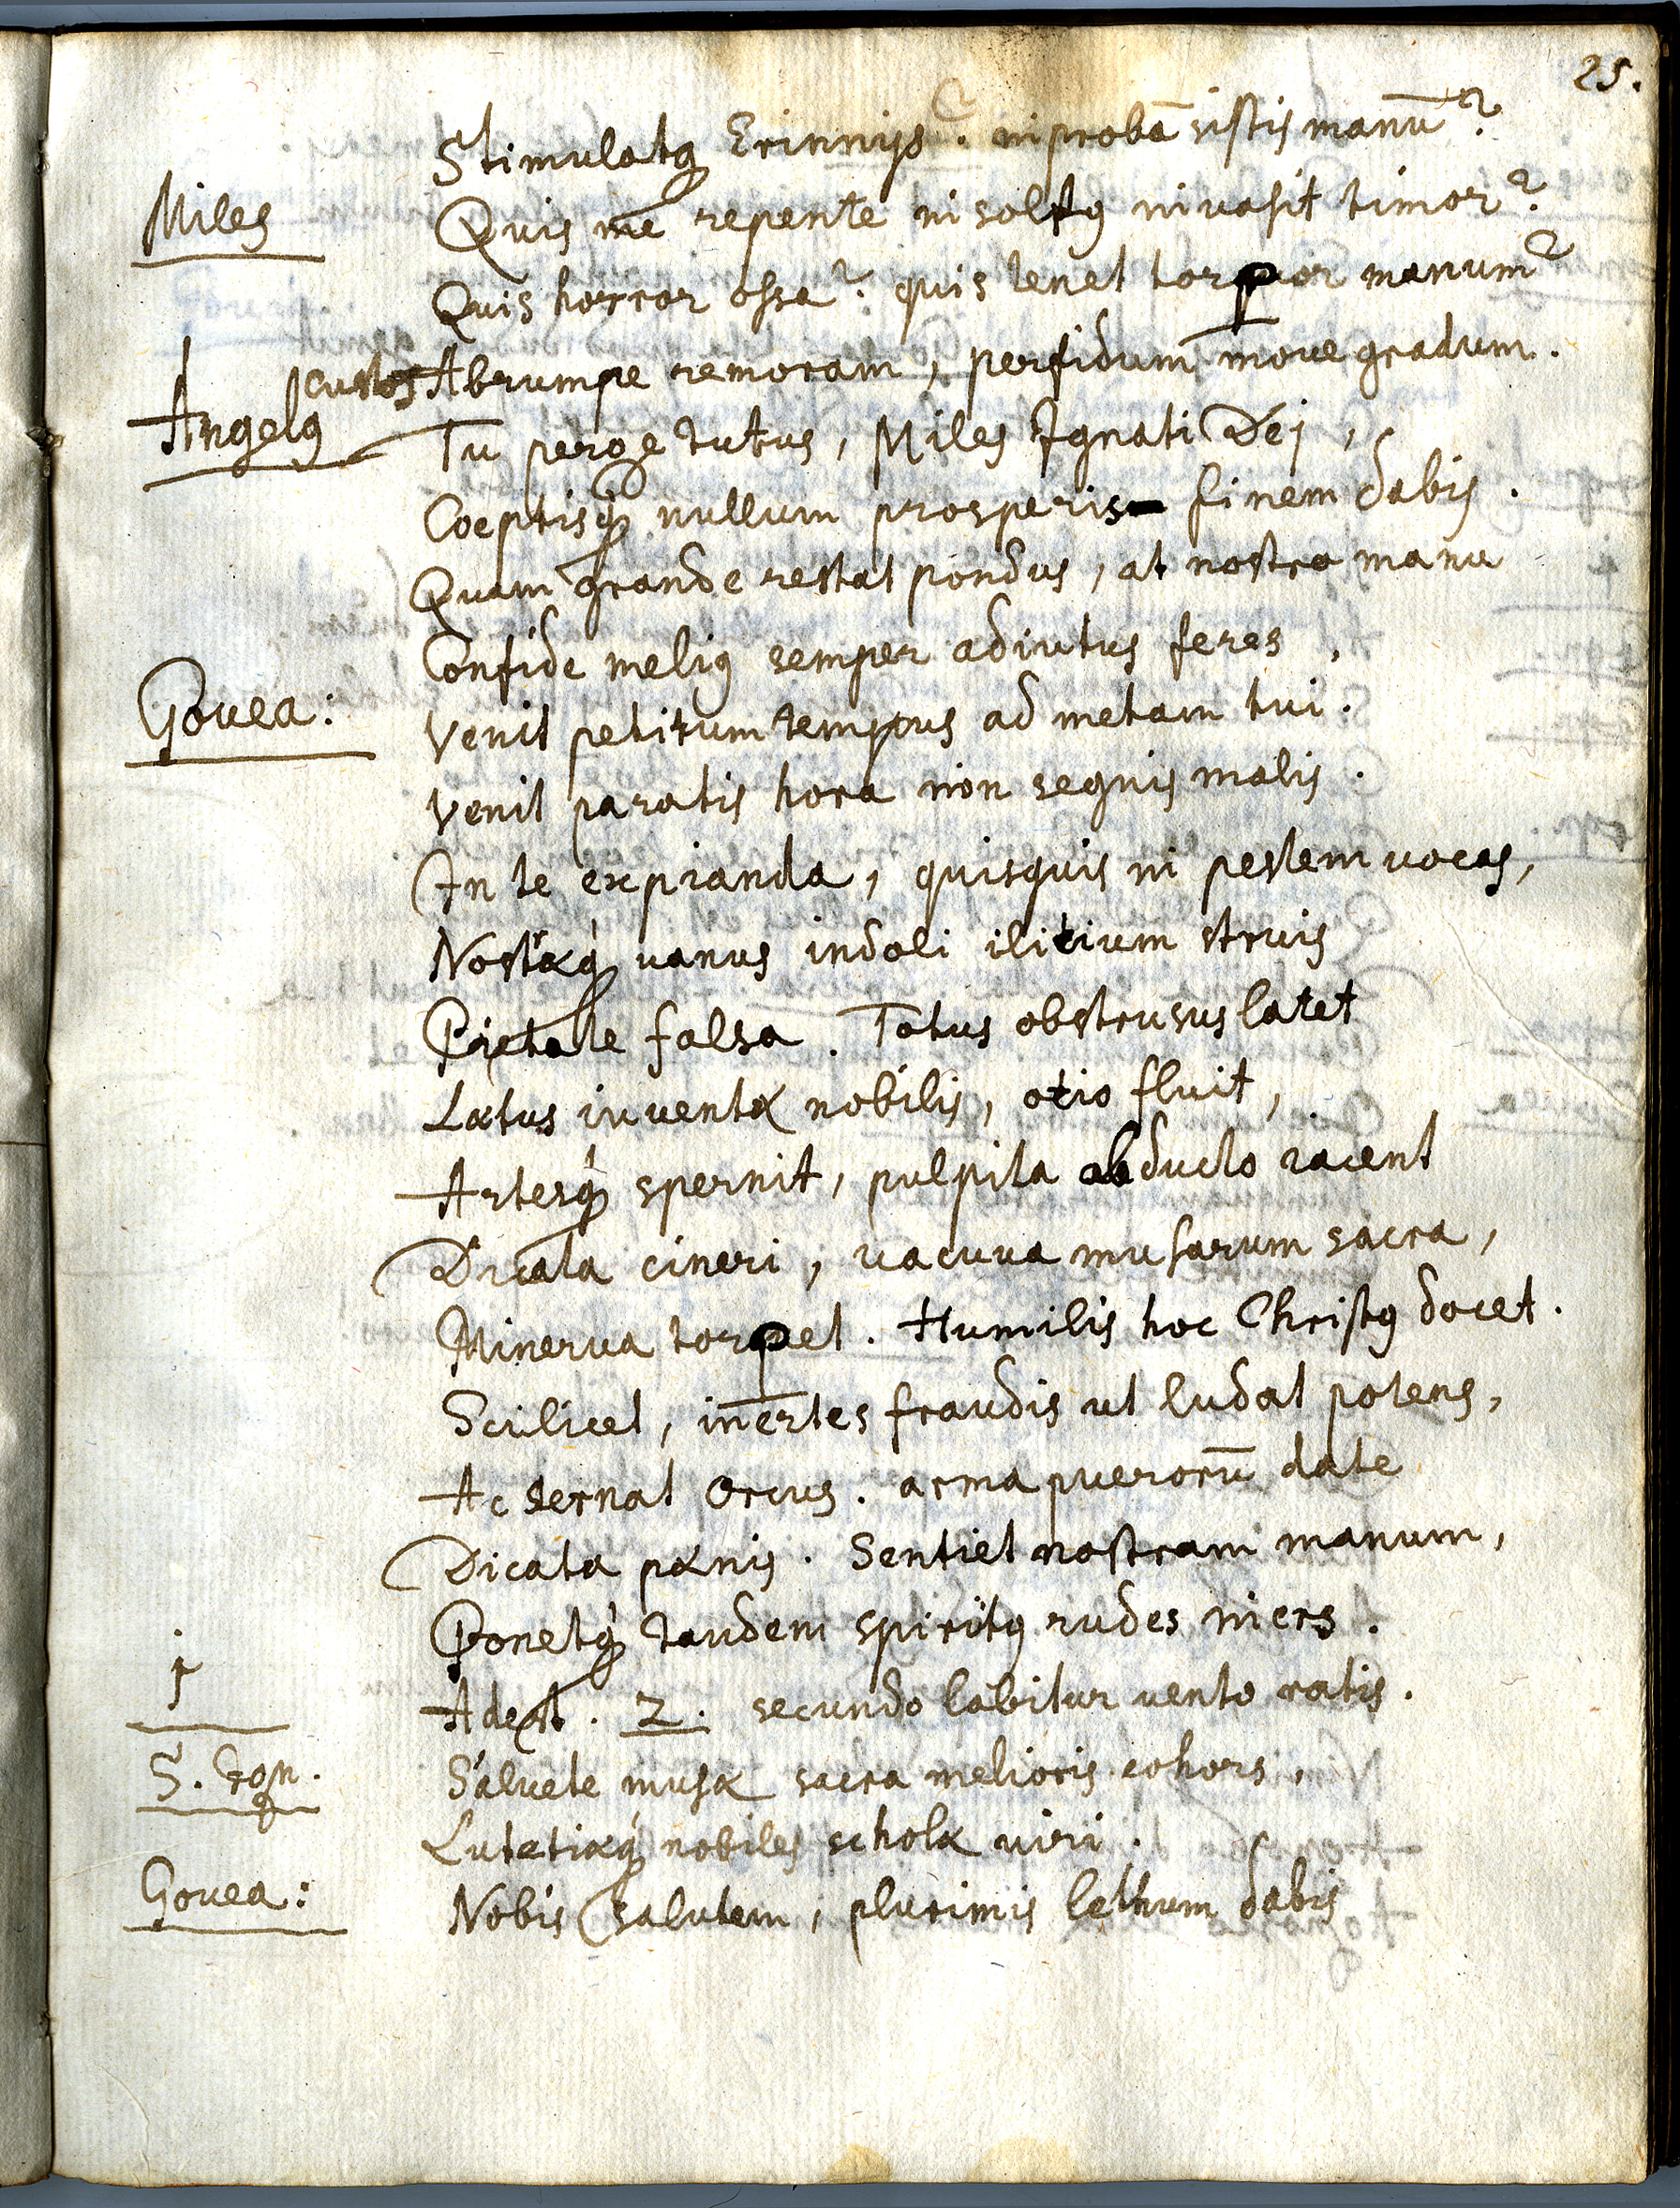 25.
Stimulatq Erinnys? inprobā sistis manū?
Miles Quis me repente insolitq inuasit timor?
Quis horror ossa? quis tenet torpor manum?
Abrumpe remoram, perfidum moue gradum.
Angelq custos Tu perge tutus, Miles Ignati Dei,
Coeptisq́ nullum prosperis finem dabis.
Quam grande restat pondus, at nostra manu
Confide meliq semper adiutus feres,
Gouea: Venit petitum tempus ad metam tui.
Venit paratis hora non segnis malis.
In te expianda, quisquis in pestem uocas,
Nostræq́ uanus indoli ilitium struis
Pietate falsa. Totus obstrusus latet
Lætus iuuentæ nobilis, otio fluit,
Artesq́ spernit, pulpita abducto iacent
Dicata cineri, uacuua musarum sacra,
Minerua torpet. Humilis hoc Christq docet.
Scilicet, inertes fraudis ut ludat potens,
Ac sternat Orcus. arma puerorū date
Dicata pænis. Sentiet nostram manum,
Ponetq́ tandem spiritq rudes iners.
1 Adest. 2. secundo labitur uento ratis.
S. Ign. Salvete musæ sacra melioris cohors,
Lutetiæq́ nobiles scholæ uiri.
Gouea: Nobis salutem, plurimis lethum dabis